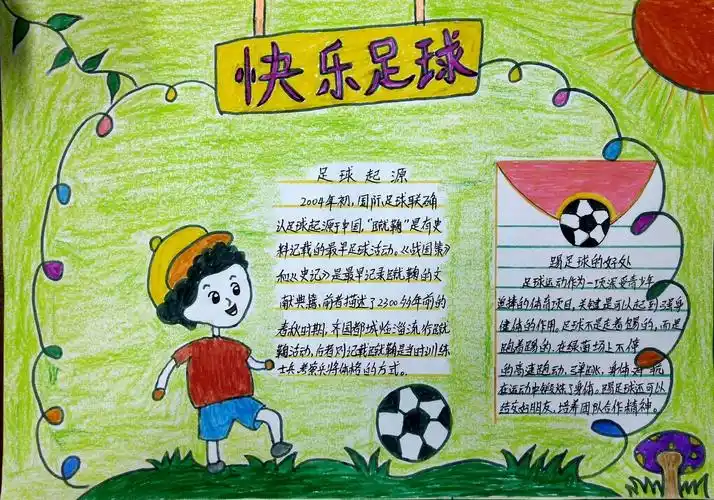 快乐足球
足球起源
2004年初，国际足球联确
认足球起源于中国，“蹴鞠”是有史
料记载的最早足球活动。《战国策》
和《史记》是最早记录蹴鞠的文
献典籍，前者描述了2300多年前的
春秋时期，齐国都城临淄流行蹴
鞠活动，后者则记载蹴鞠是当时训练
士兵，考察兵将体格的方式。
踢足球的好处
足球运动作为一项深受青少年
追捧的体育项目，关键是可以起到强身
健体的作用。足球不是走着踢的，而是
跑着踢的，在绿茵场上不停
的高速跑动，弹跳，身体对抗
在运动中锻炼了身体。踢足球还可以
结交好朋友，培养团队合作精神。